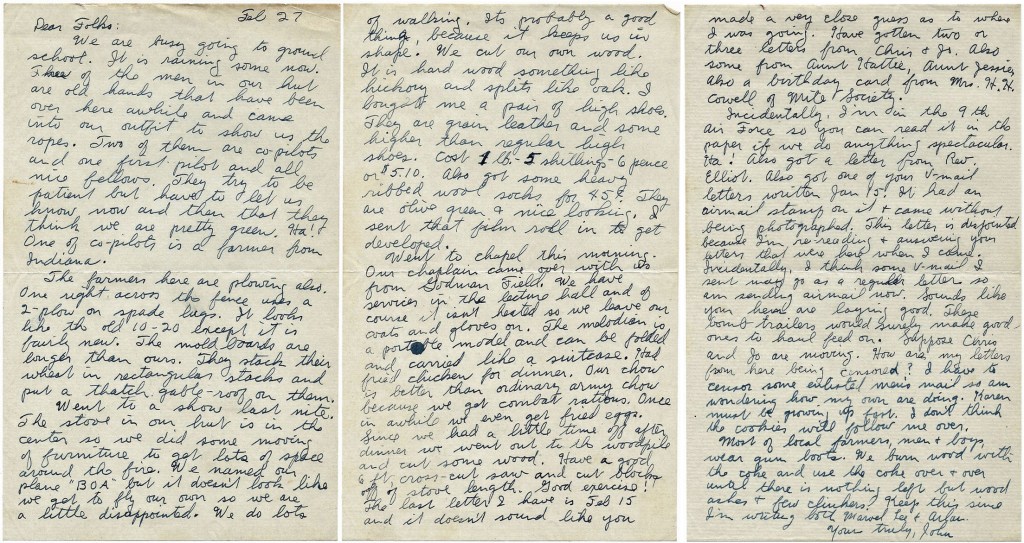 Feb 27
Dear Folks:
We are busy going to ground
school. It is raining some now.
Three of the men in our hut
are old hands that have been
over here awhile and came
into our outfit to show us the
ropes. Two of them are co-pilots
and one first pilot and all
nice fellows. They try to be
patient but have to let us
know now and then that they
think we are pretty green. Ha!
One of co-pilots is a farmer from
Indiana.
The farmers here are plowing also.
One right across the fence uses a
2-plow on spade lugs. It looks
like the old 10-20 except it is
fairly new. The mold boards are
longer than ours. They stack their
wheat in rectangular stacks and
put a thatch gable-roof on them.
Went to a show last nite.
The stove in our hut is in the
center so we did some moving
of furniture to get lots of space
around the fire. We named our
plane "BOA" but it doesn't look like
we get to fly our own so we are
a little disappointed. We do lots
of walking. Its probably a good
thing, because it keeps us in
shape. We cut our own wood.
It is hard wood something like
hickory and splits like oak. I
bought me a pair of high shoes.
They are grain leather and some
higher than regular high
shoes. Cost 1 lb.-5 shillings-6 pence
or $5.10. Also got some heavy
ribbed wool socks for 45¢. They
are olive green & nice looking. I
sent that film roll in to get
developed.
Went to chapel this morning.
Our chaplain came over with us
from Godman Field. We have
services in the lecture hall and of
course it isn't heated so we leave our
coats and gloves on. The melodian is
a portable model and can be folded
and carried like a suitcase. Had
fried chicken for dinner. Our chow
is better than ordinary army chow
because we get combat rations. Once
in awhile we even get fried eggs.
Since we had a little time off after
dinner we went out to the woodpile
and cut some wood. Have a good
6 ft. cross-cut saw and cut blocks
off of stove length. Good exercise!
The last letter I have is Feb 15
and it doesn't sound like you
made a very close guess as to where
I was going. Have gotten two or
three letters from Chris & Jo. Also
some from Aunt Hattie, Aunt Jessie,
Also a birthday card from Mrs. H.H.
Cowell of Mite Society.
Incidentally, I'm in the 9th
air Force so you can read it in the
paper if we do anything spectacular.
Ha! Also got a letter from Rev.
Elliot. Also got one of your V-mail
letters written Jan 15. It had an
airmail stamp on it & came without
being photographed. This letter is disjointed
because I'm re-reading & answering your
letters that were here when I came.
Incidentally, I think some V-mail I
sent may go as a regular letter so
am sending airmail now. Sounds like
your hens are laying good. These
bomb trailers would surely make good
ones to haul feed on. Suppose Chris
and Jo are moving. How are my letters
from here being censored? I have to
censor some enlisted mens mail so am
wondering how my own are doing. Karen
must be growing up fast. I don't think
the cookies will follow me over.
Most of local farmers, men & boys,
wear gum boots. We burn wood with
the coke and use the coke over & over
until there is nothing left but wood
ashes & few clinkers. Keep this since
I'm writing both Marvel &
Your truly, John